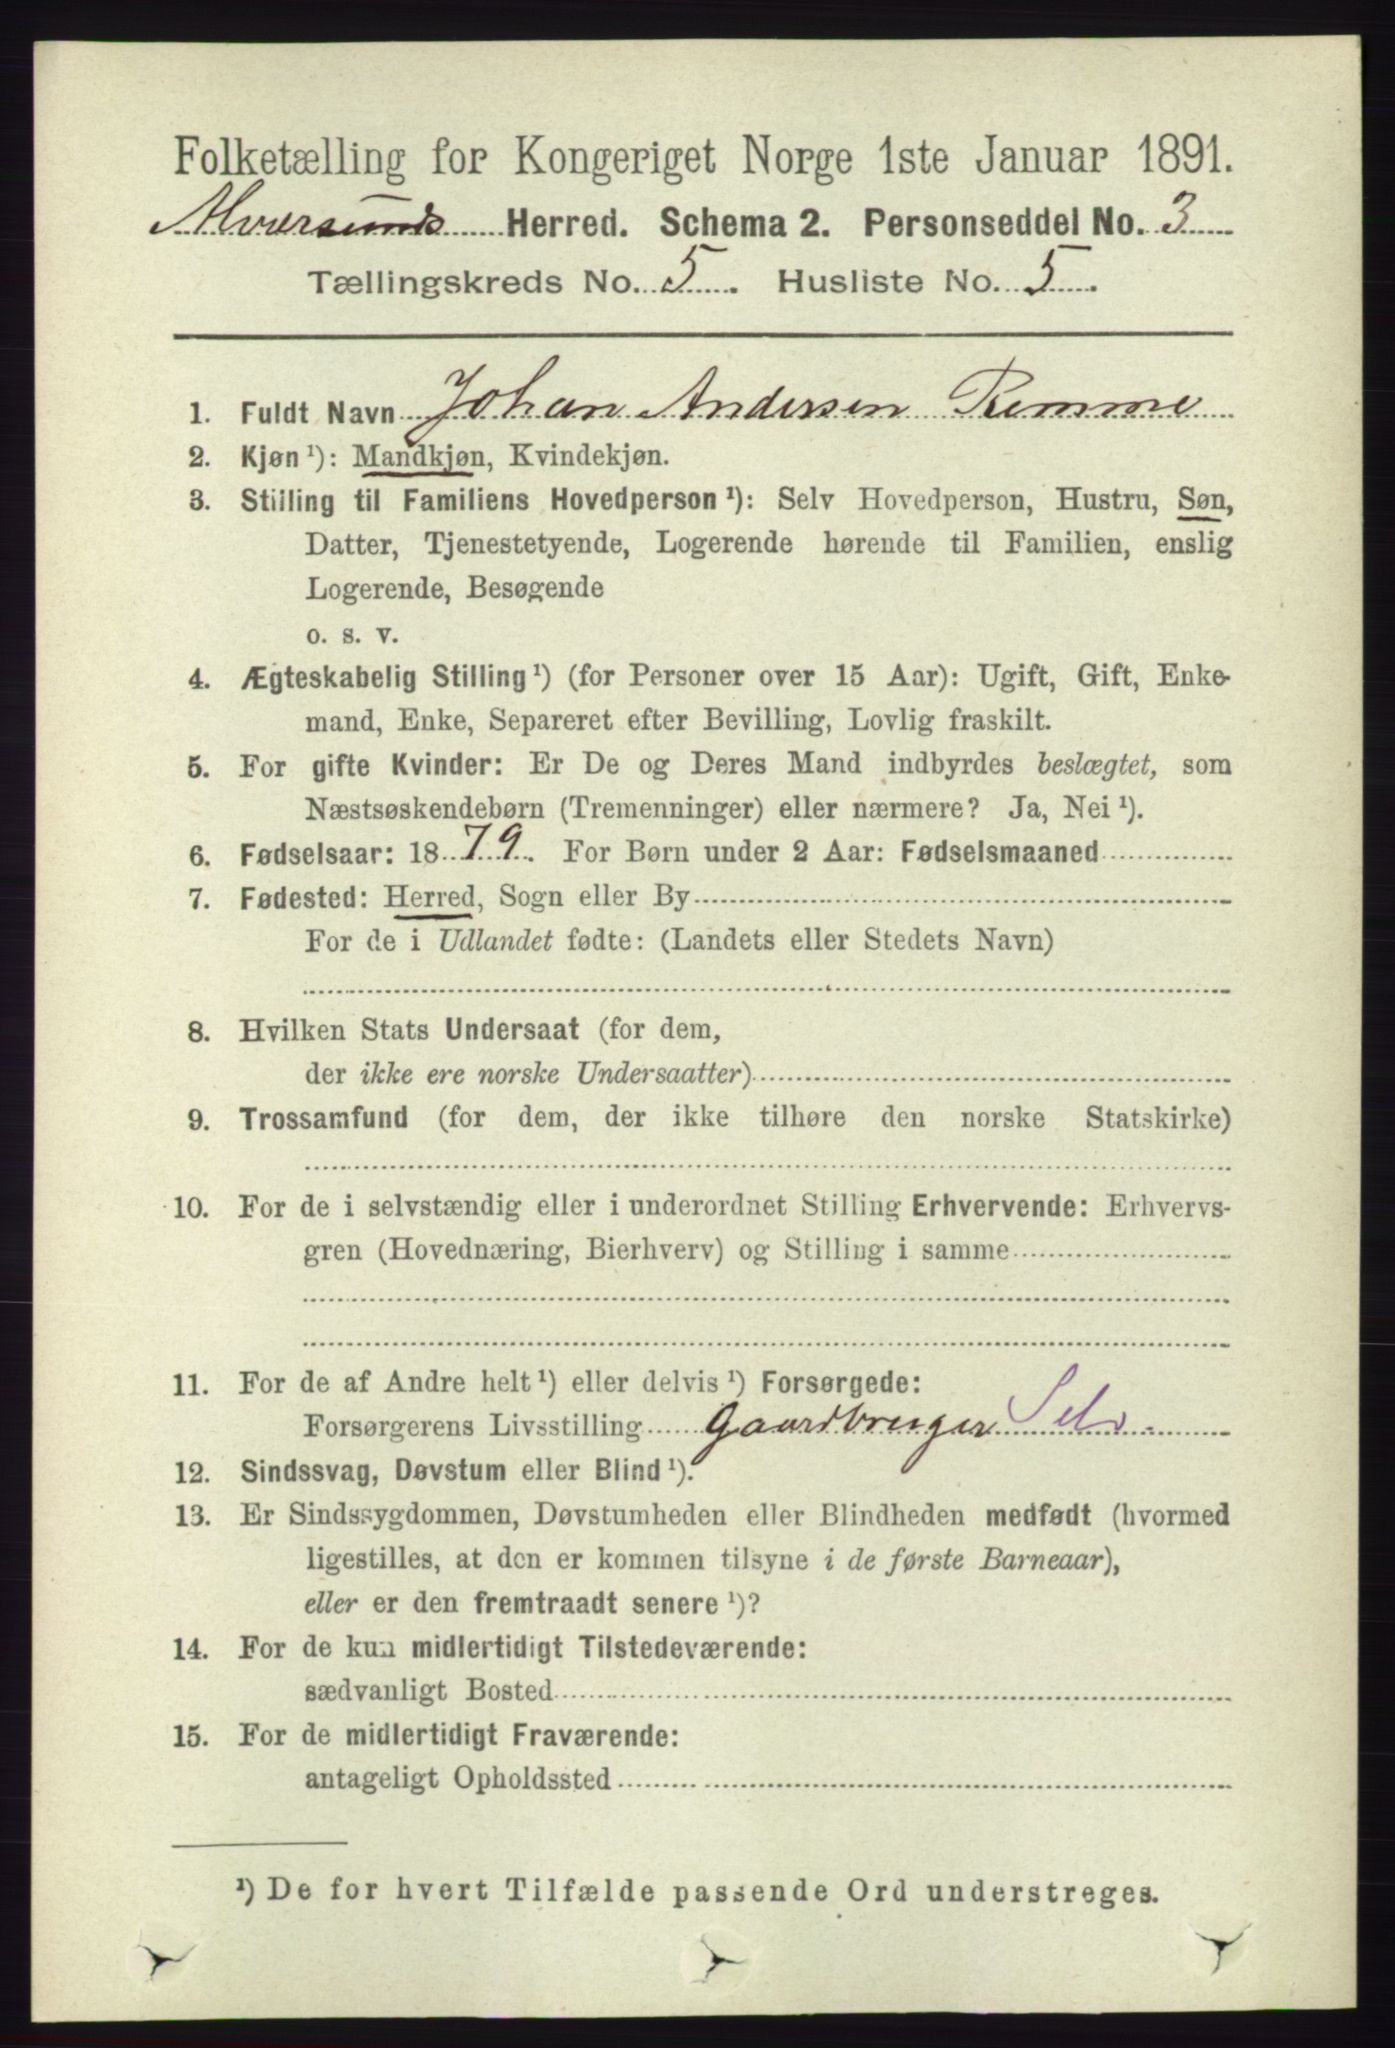 Folketælling for Kongeriget Norge 1ste Januar 1891.
Alversunds Herred. Schema 2. Personseddel No. 3
Tællingskreds No. 5. Husliste No. 5.
1. Fuldt Navn Johan Andersen Remme
2. Kjøn ¹): Mandkjøn, Kvindekjøn.
3. Stilling til Familiens Hovedperson ¹): Selv Hovedperson, Hustru, Søn,
Datter, Tjenestetyende, Logerende hørende til Familien, enslig
Logerende, Besøgende
o. s. v.
4. Ægteskabelig Stilling ¹) (for Personer over 15 Aar): Ugift, Gift, Enke-
mand, Enke, Separeret efter Bevilling, Lovlig fraskilt.
5. For gifte Kvinder: Er De og Deres Mand indbyrdes beslægtet, som
Næstsøskendebørn (Tremenninger) eller nærmere? Ja, Nei ¹).
6. Fødselsaar: 1879. For Børn under 2 Aar: Fødselsmaaned
7. Fødested: Herred, Sogn eller By
For de i Udlandet fødte: (Landets eller Stedets Navn)
8. Hvilken Stats Undersaat (for dem,
der ikke ere norske Undersaatter)
9. Trossamfund (for dem, der ikke tilhøre den norske Statskirke)
10. For de i selvstændig eller i underordnet Stilling Erhvervende: Erhvervs-
gren (Hovednæring, Bierhverv) og Stilling i samme
11. For de af Andre helt ¹) eller delvis ¹) Forsørgede:
Forsørgerens Livsstilling Gaardbruger Selv.
12. Sindssvag, Døvstum eller Blind ¹).
13. Er Sindssygdommen, Døvstumheden eller Blindheden medfødt (hvormed
ligestilles, at den er kommen tilsyne i de første Barneaar),
eller er den fremtraadt senere ¹)?
14. For de kun midlertidigt Tilstedeværende:
sædvanligt Bosted
15. For de midlertidigt Fraværende:
antageligt Opholdssted
¹) De for hvert Tilfælde passende Ord understreges.